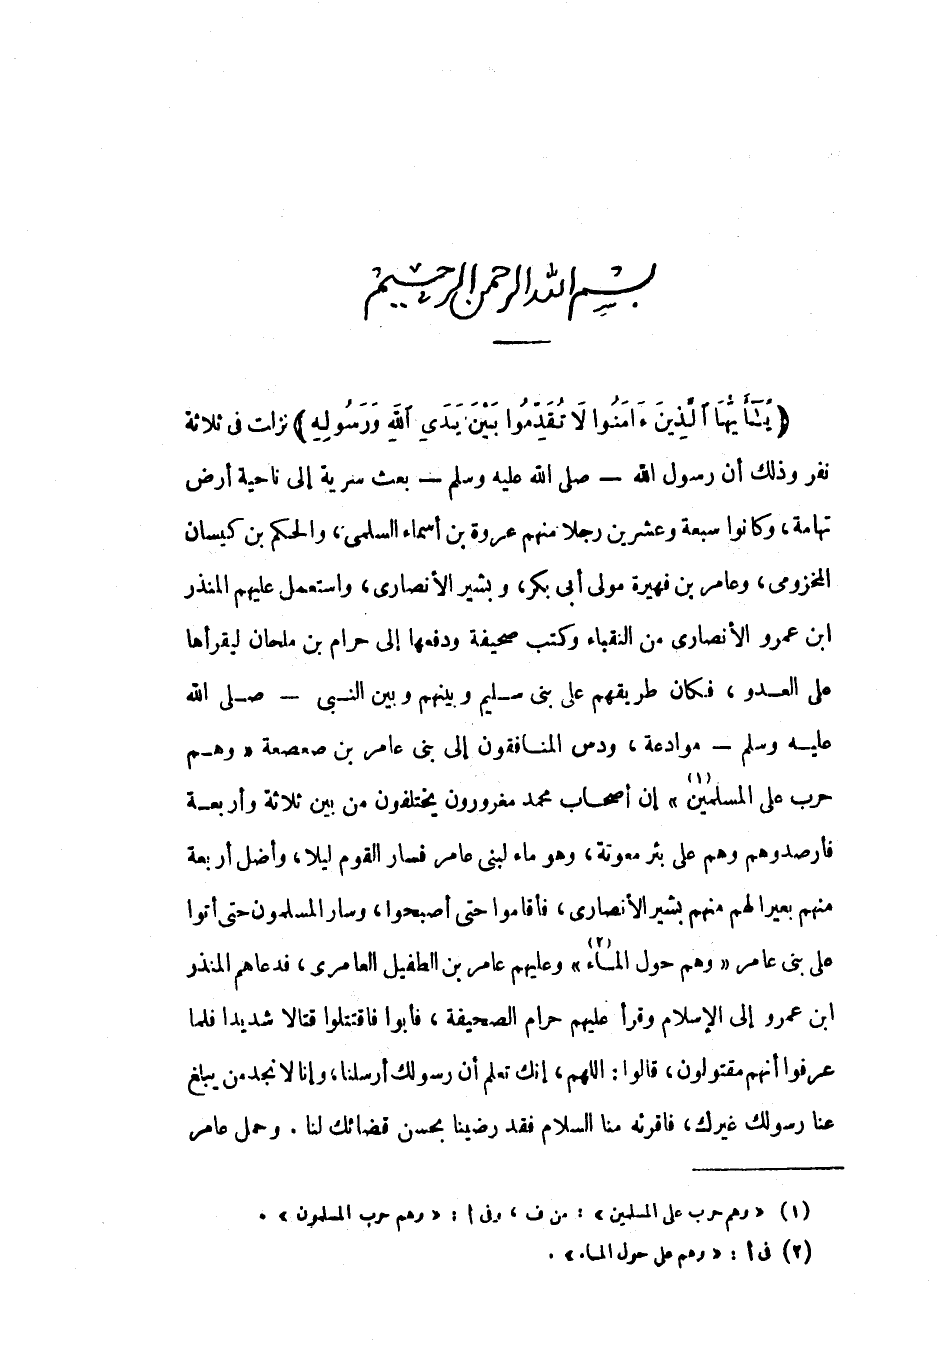 بسم الله الرحمن الرحيم
﴿ يَٰٓأَيُّهَا ٱلَّذِينَ ءَامَنُوا لَا تُقَدِّمُوا بَيْنَ يَدَيِ ٱللَّهِ وَرَسُولِهِ ﴾ نزلت فى ثلاثة
نفر وذلك أن رسول الله — صلى الله عليه وسلم — بعث سرية إلى ناحية أرض
تهامة، وكانوا سبعة وعشرين رجلا منهم عروة بن أسماء السلمى، والحكم بن كيسان
المخزومى، وعامر بن فهيرة مولى أبى بكر، وبشير الأنصارى، واستعمل عليهم المنذر
ابن عمرو الأنصارى من النقباء وكتب صحيفة ودفعها إلى حرام بن ملحان ليقرأها
على العدو ، فكان طريقهم على بنى سليم وبينهم وبين النبى — صلى الله
عليه وسلم — موادعة، ودس المنافقون إلى بنى عامر بن صعصعة « وهم
حرب على المسلمين(١) » إن أصحاب محمد مغرورون يختلفون من بين ثلاثة وأربعة
فأرصدوهم وهم على بئر معونة، وهو ماء لبنى عامر فسار القوم ليلا، وأضل أربعة
منهم بعيرا لهم منهم بشير الأنصارى، فأقاموا حتى أصبحوا، وسار المسلمون حتى أتوا
على بنى عامر « وهم حول الماء(٢) » وعليهم عامر بن الطفيل العامرى، فدعاهم المنذر
ابن عمرو إلى الإسلام وقرأ عليهم حرام الصحيفة ، فأبوا فاقتتلوا قتالا شديدا فلما
عرفوا أنهم مقتولون، قالوا: اللهم، إنك تعلم أن رسولك أرسلنا، وإنا لا نجد من يبلغ
عنا رسولك غيرك، فاقرئه منا السلام فقد رضينا بحسن قضائك لنا . وحمل عامر
(١) « وهم حرب على المسلمين » : من ف ، وفى أ : « وهم حرب المسلمون » .
(٢) فى أ : « وهم على حول الماء » .